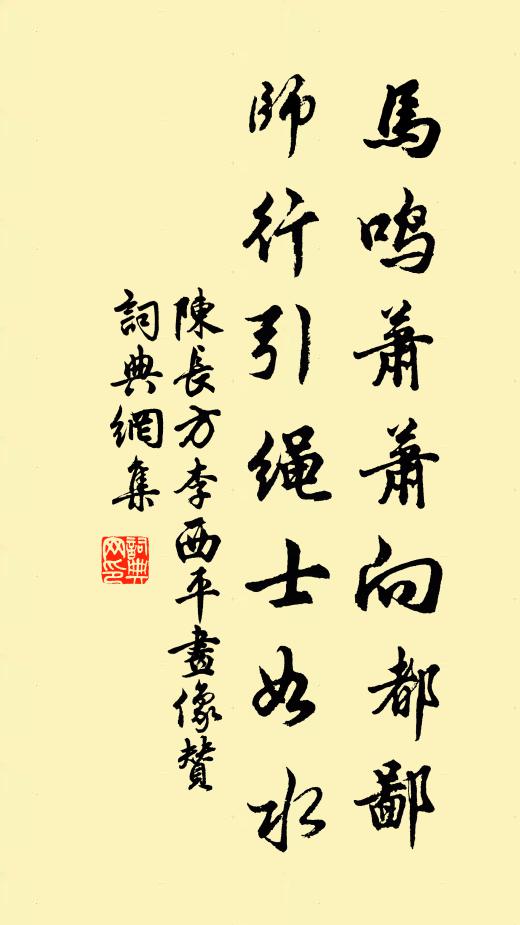 馬鳴蕭蕭向都鄙
師行引繩士如水
陳長方李西平畫像贊
詞典網集
詞典
网印